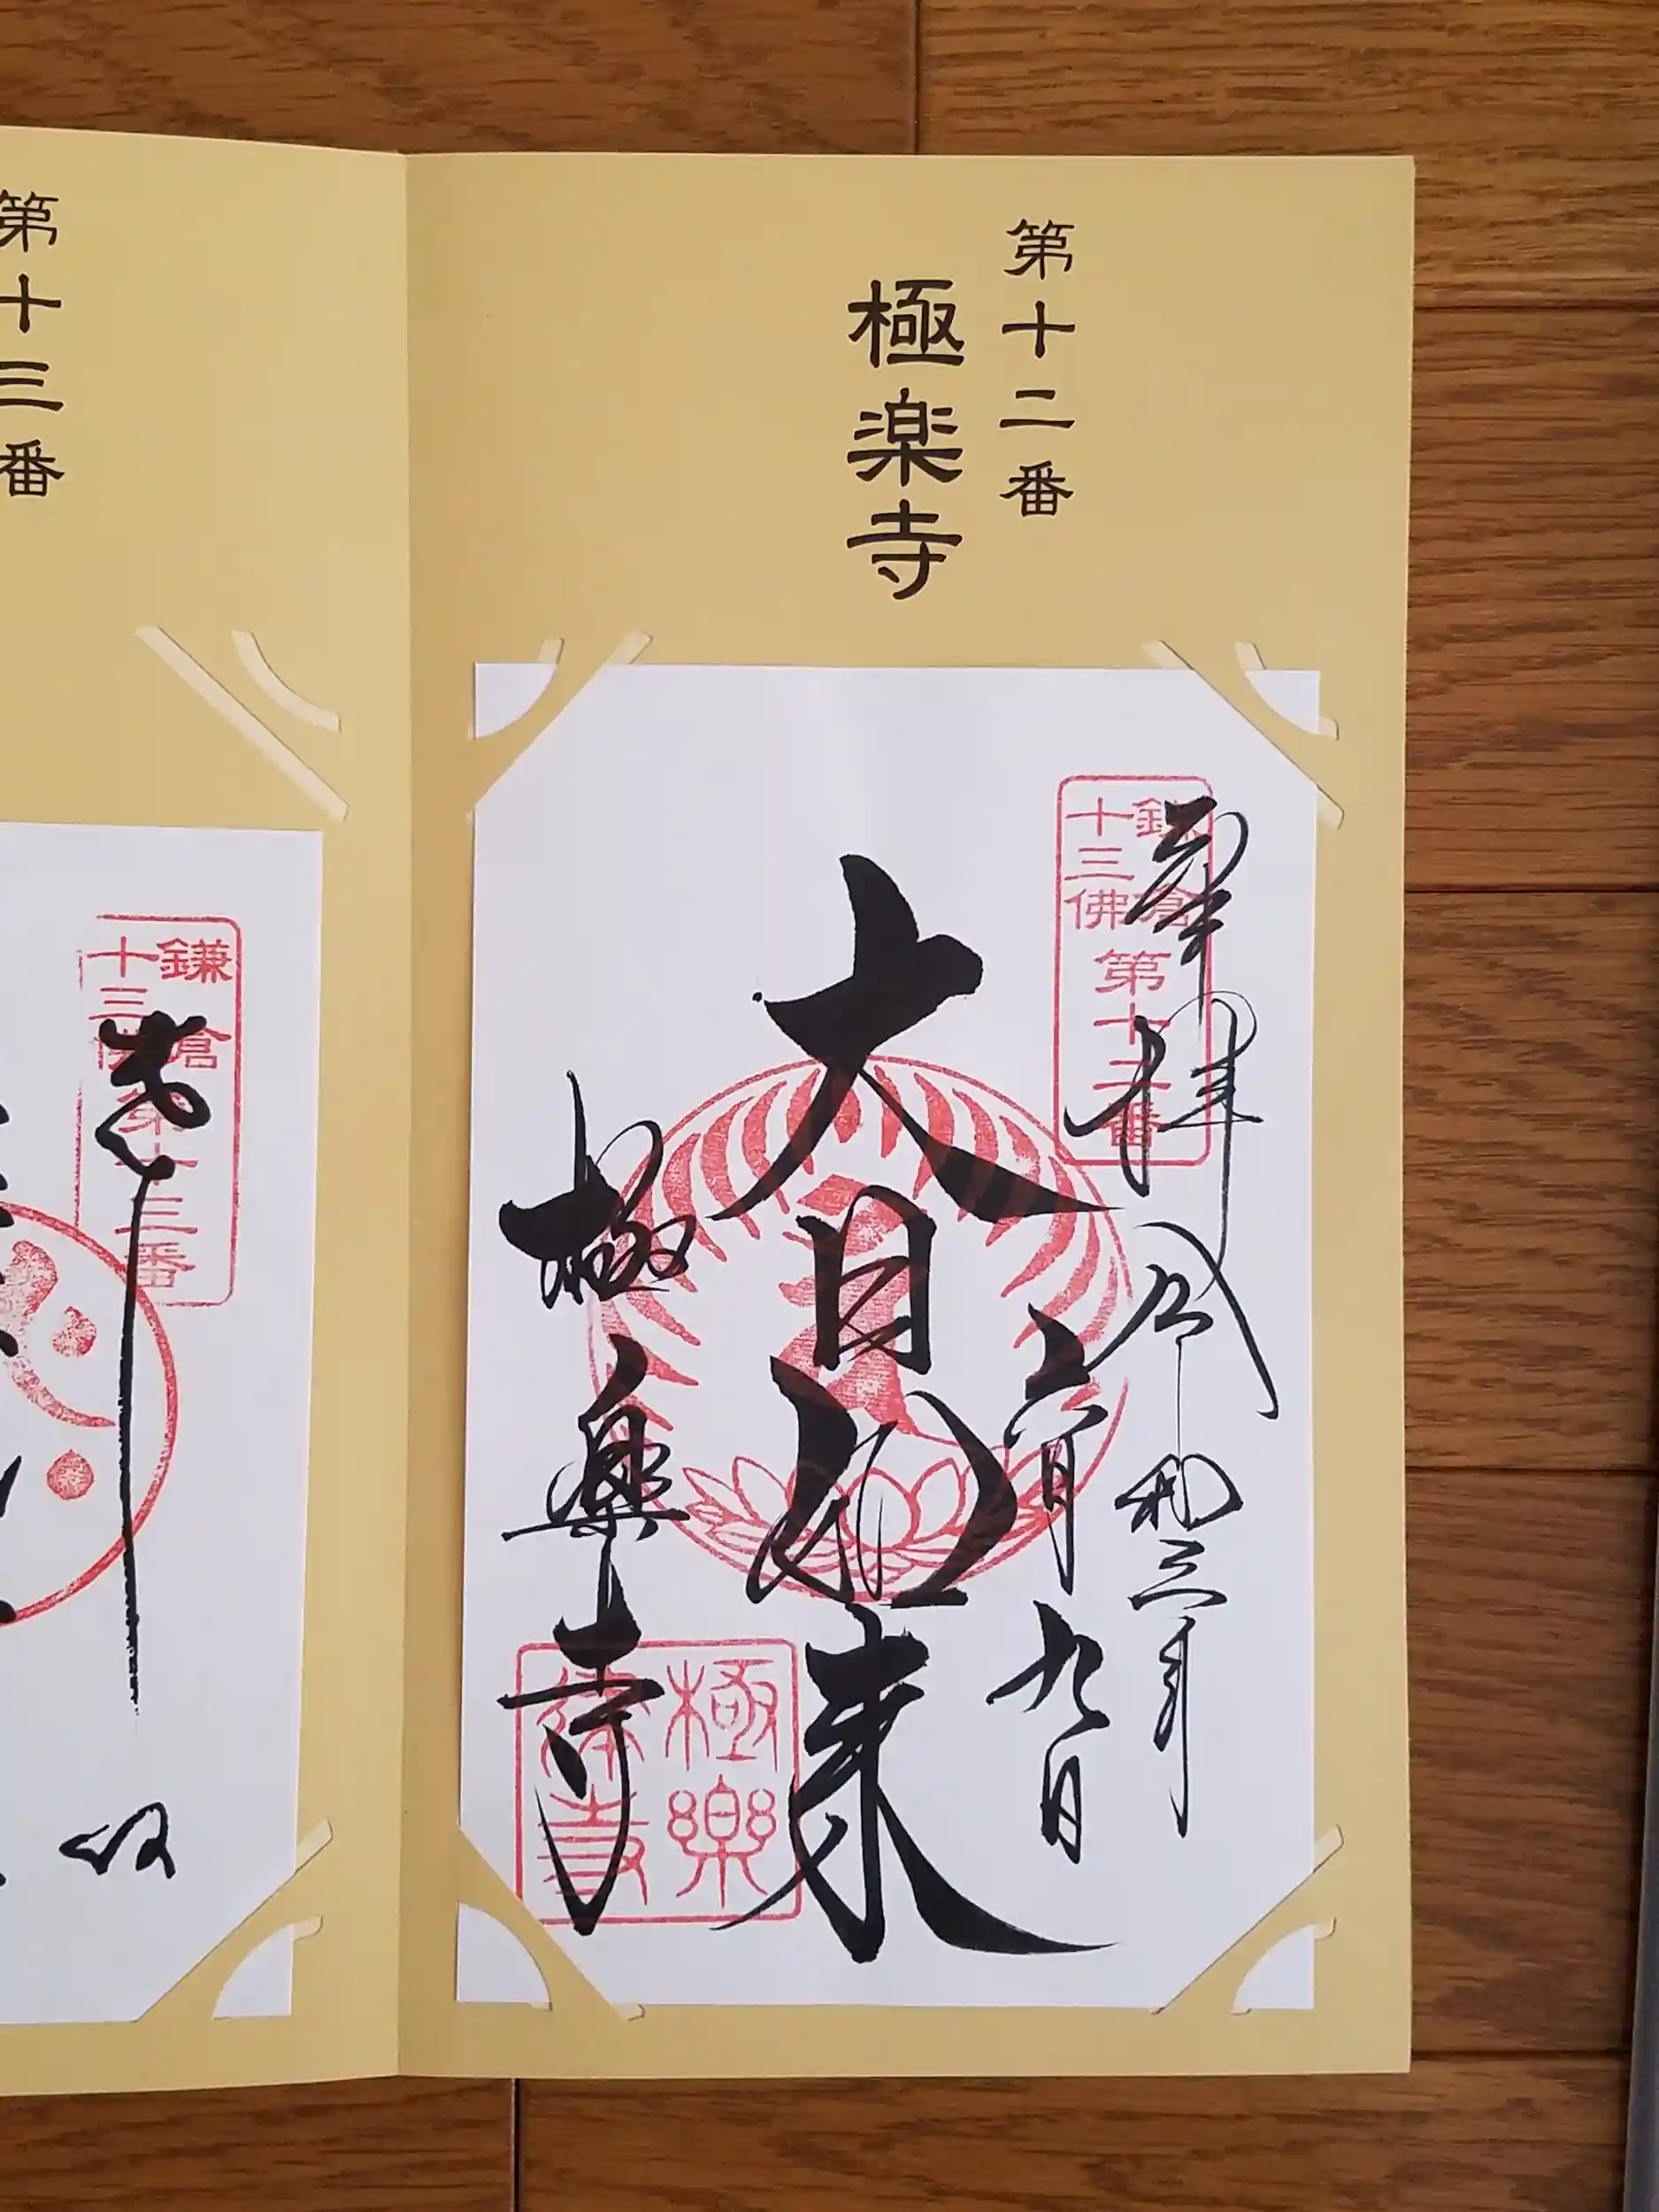 第十二番
極楽寺
鎌倉
十三佛
第十二番
奉拝
令和三年
九日
大日如来
極樂寺
極樂
第十三番
鎌倉
十三佛
第十三番